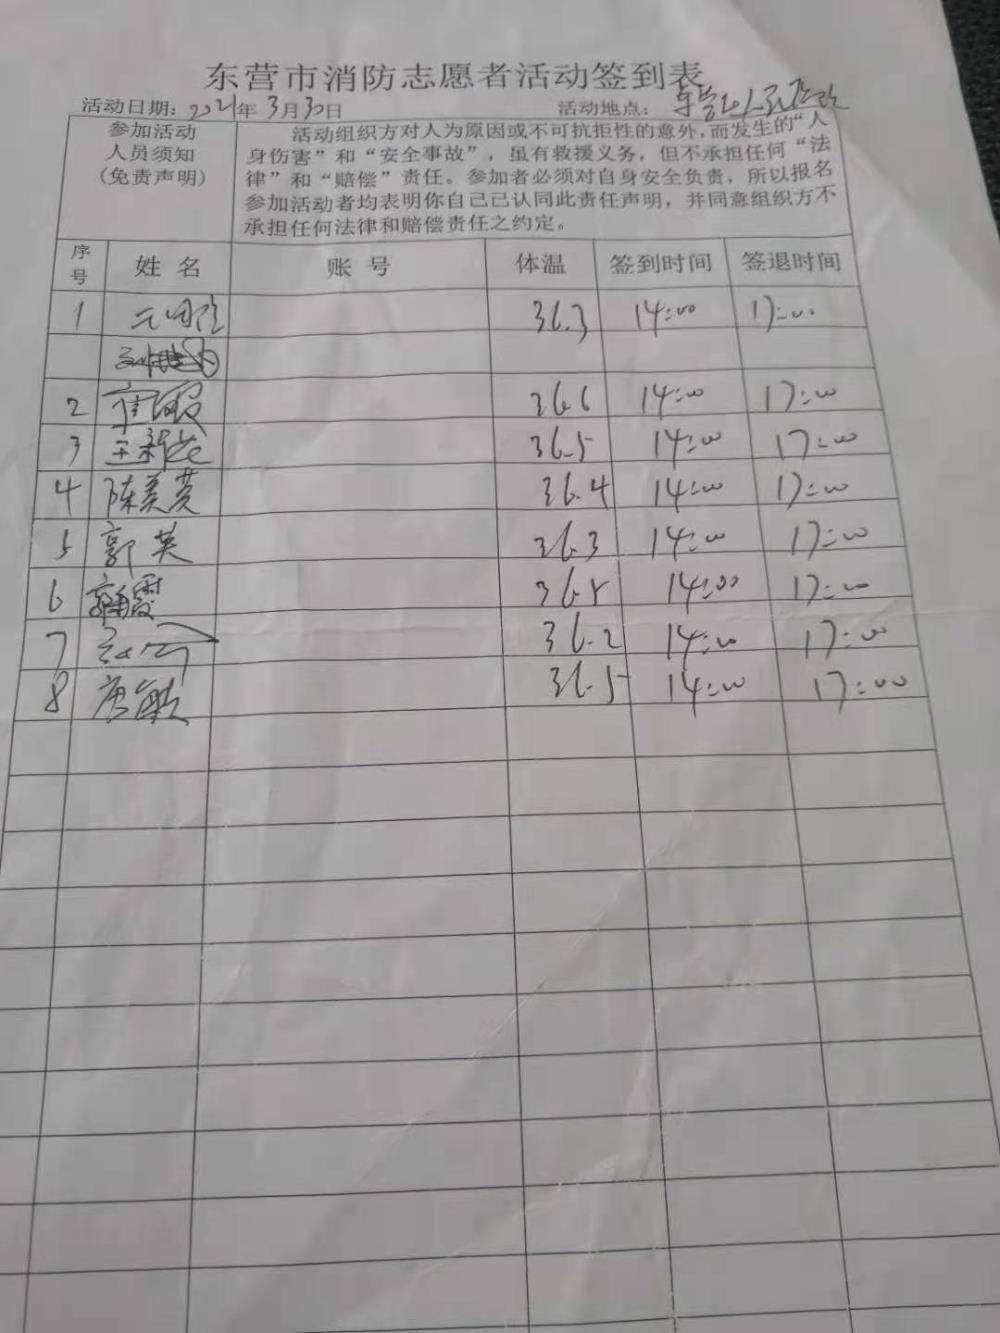 东营市消防志愿者活动签到表
活动日期：2021年3月30日 活动地点：东营市人民医院
参加活动
人员须知
(免责声明)
活动组织方对人为原因或不可抗拒性的意外,而发生的“人
身伤害”和“安全事故”，虽有救援义务，但不承担任何“法
律”和“赔偿”责任。参加者必须对自身安全负责，所以报名
参加活动者均表明你自己已认同此责任声明，并同意组织方不
承担任何法律和赔偿责任之约定。
序号 姓名 账号 体温 签到时间 签退时间
1 36.3 14:00 17:00
2 崔 36.6 14:00 17:00
3 王新花 36.5 14:00 17:00
4 陈美英 36.4 14:00 17:00
5 郭英 36.3 14:00 17:00
6 36.5 14:00 17:00
7 36.2 14:00 17:00
8 唐敏 36.5 14:00 17:00